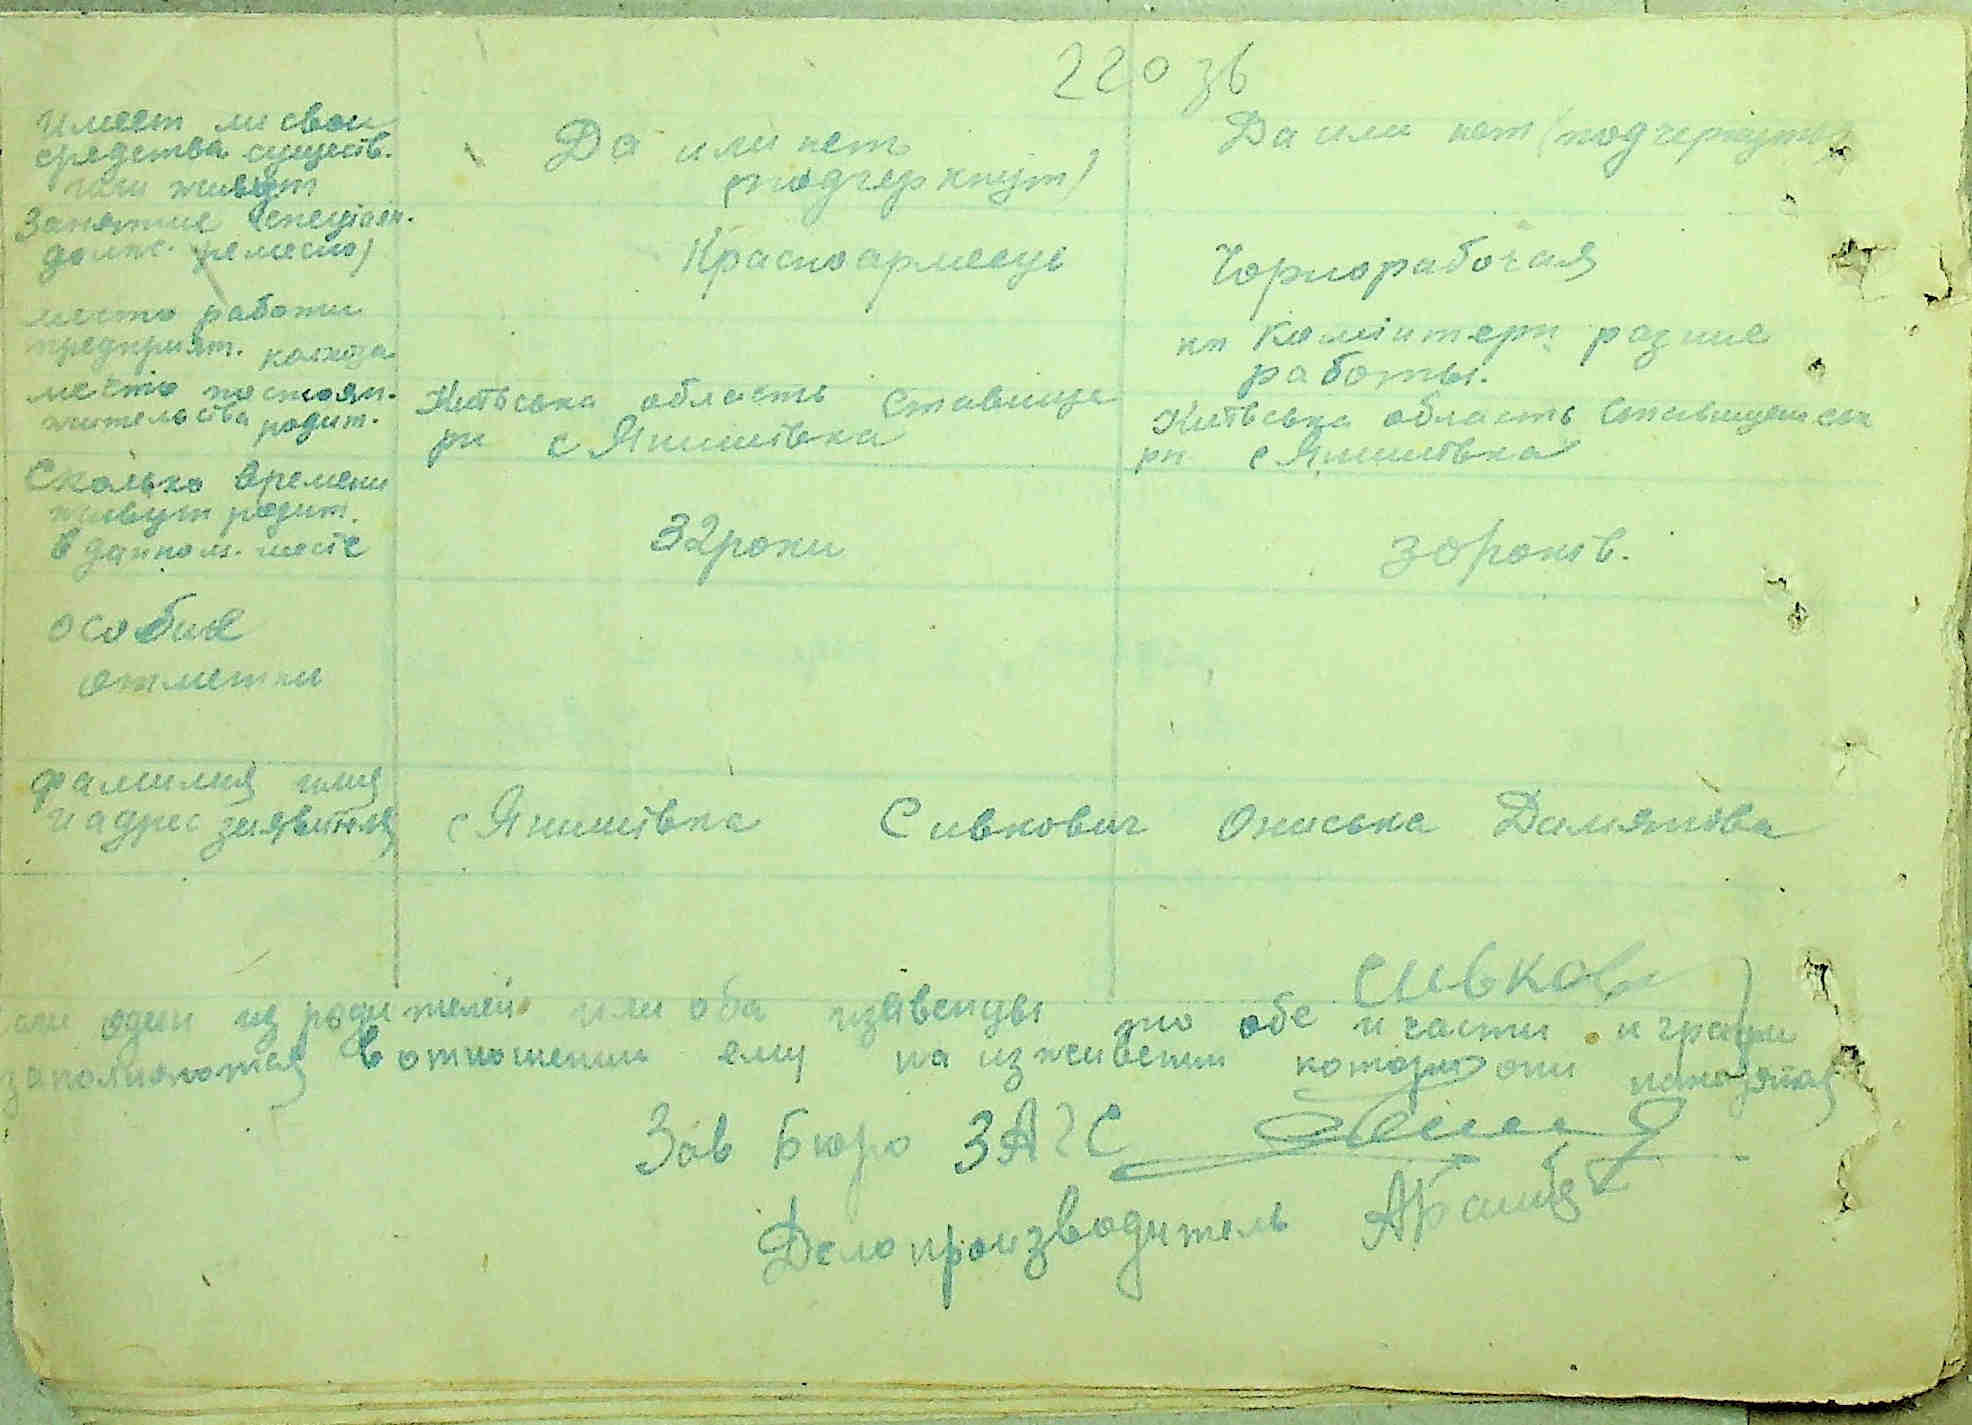 220 зв
Имеет ли свои
средства существ.
Да или нет
(подчеркнут)
Да или нет (подчеркнуть)
Занятие (специолн.
должс. ремесло)
Красноармеець
Чорнорабочая
место работи
предприят. колхоза
на Комінтерн разние
работы.
место постоян.
жительства родит.
Київська область Ставище
рн с Янишівка
Київська область Ставищенськ
рн с Янишівка
Сколько времени
живут родит.
в данном. месте
32 роки
30 років.
особие
отметки
фамилия имя
и адрес заявителя
с Янишівка Сивкович Ониська Дамянова
Сивков
или один из родителей или оба то обе и части и графи
заполняются в отношении ему на изживении которго они находятся
Зав Бюро ЗАГС
Делопроизводитель